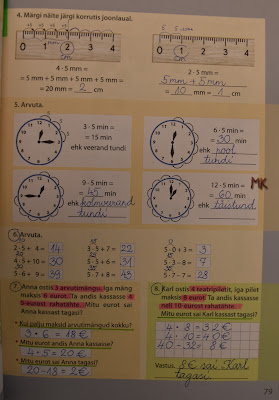 4. Märgi näite järgi korrutis joonlaual.
+5 +5 +5 +5
0 1 2 3 4
cm
0 1 2 3 4
cm
4 · 5 mm =
= 5 mm + 5 mm + 5 mm + 5 mm =
= 20 mm = 2 cm
2 · 5 mm =
5mm + 5mm
= 10 mm = 1 cm
5. Arvuta.
3 · 5 min =
= 15 min
ehk veerand tundi
6 · 5 min =
= 30 min
ehk pool
tundi
9 · 5 min =
= 45 min
ehk kolmveerand
tundi
12 · 5 min =
= 60 min
ehk täistund
MK
6. Arvuta.
2 · 5 + 4 = 14
4 · 5 + 10 = 30
5 · 6 + 9 = 39
3 · 5 + 7 = 22
5 · 5 + 6 = 31
5 · 7 + 8 = 43
5 · 0 + 3 = 3
5 · 3 – 8 = 7
5 · 7 – 7 = 28
7. Anna ostis 3 arvutimängu, iga mäng
maksis 6 eurot. Ta andis kassasse 4
5-eurost rahatähte. Mitu eurot sai
Anna kassast tagasi?
• Kui palju maksid arvutimängud kokku?
3 · 6 = 18 €
• Mitu eurot andis Anna kassasse?
4 · 5 = 20 €
• Mitu eurot sai Anna tagasi?
20 - 18 = 2 €
8. Karl ostis 4 teatripiletit, iga pilet
maksis 8 eurot. Ta andis kassasse
neli 10-eurost rahatähte.
Mitu eurot sai Karl kassast tagasi?
4 · 8 = 32 €
4 · 10 = 40 €
40 - 32 = 8 €
Vastus. 8 € sai Karl
tagasi
79